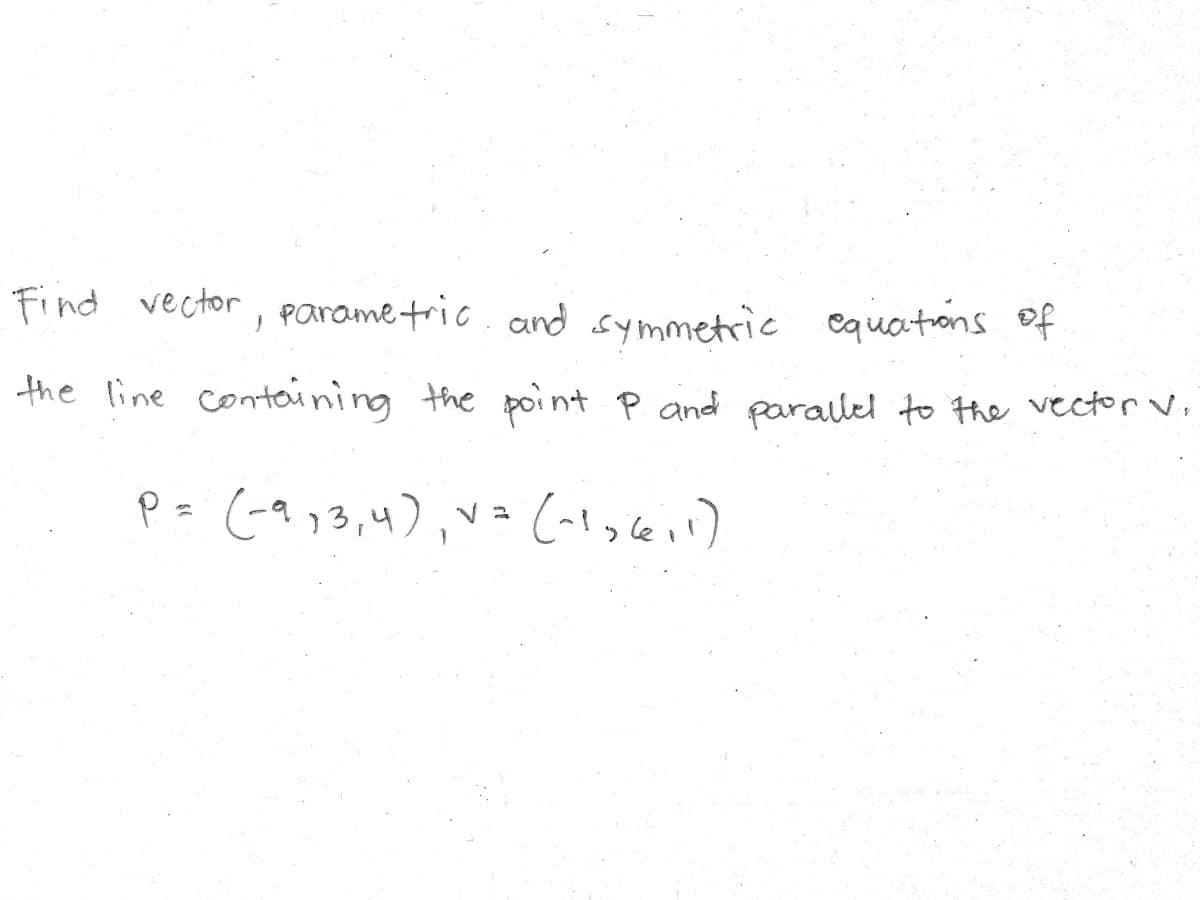 Find vector, parametric and symmetric equations of
the line containing the point P and parallel to the vector v.
P = (-9,3,4), v = (-1,6,1)